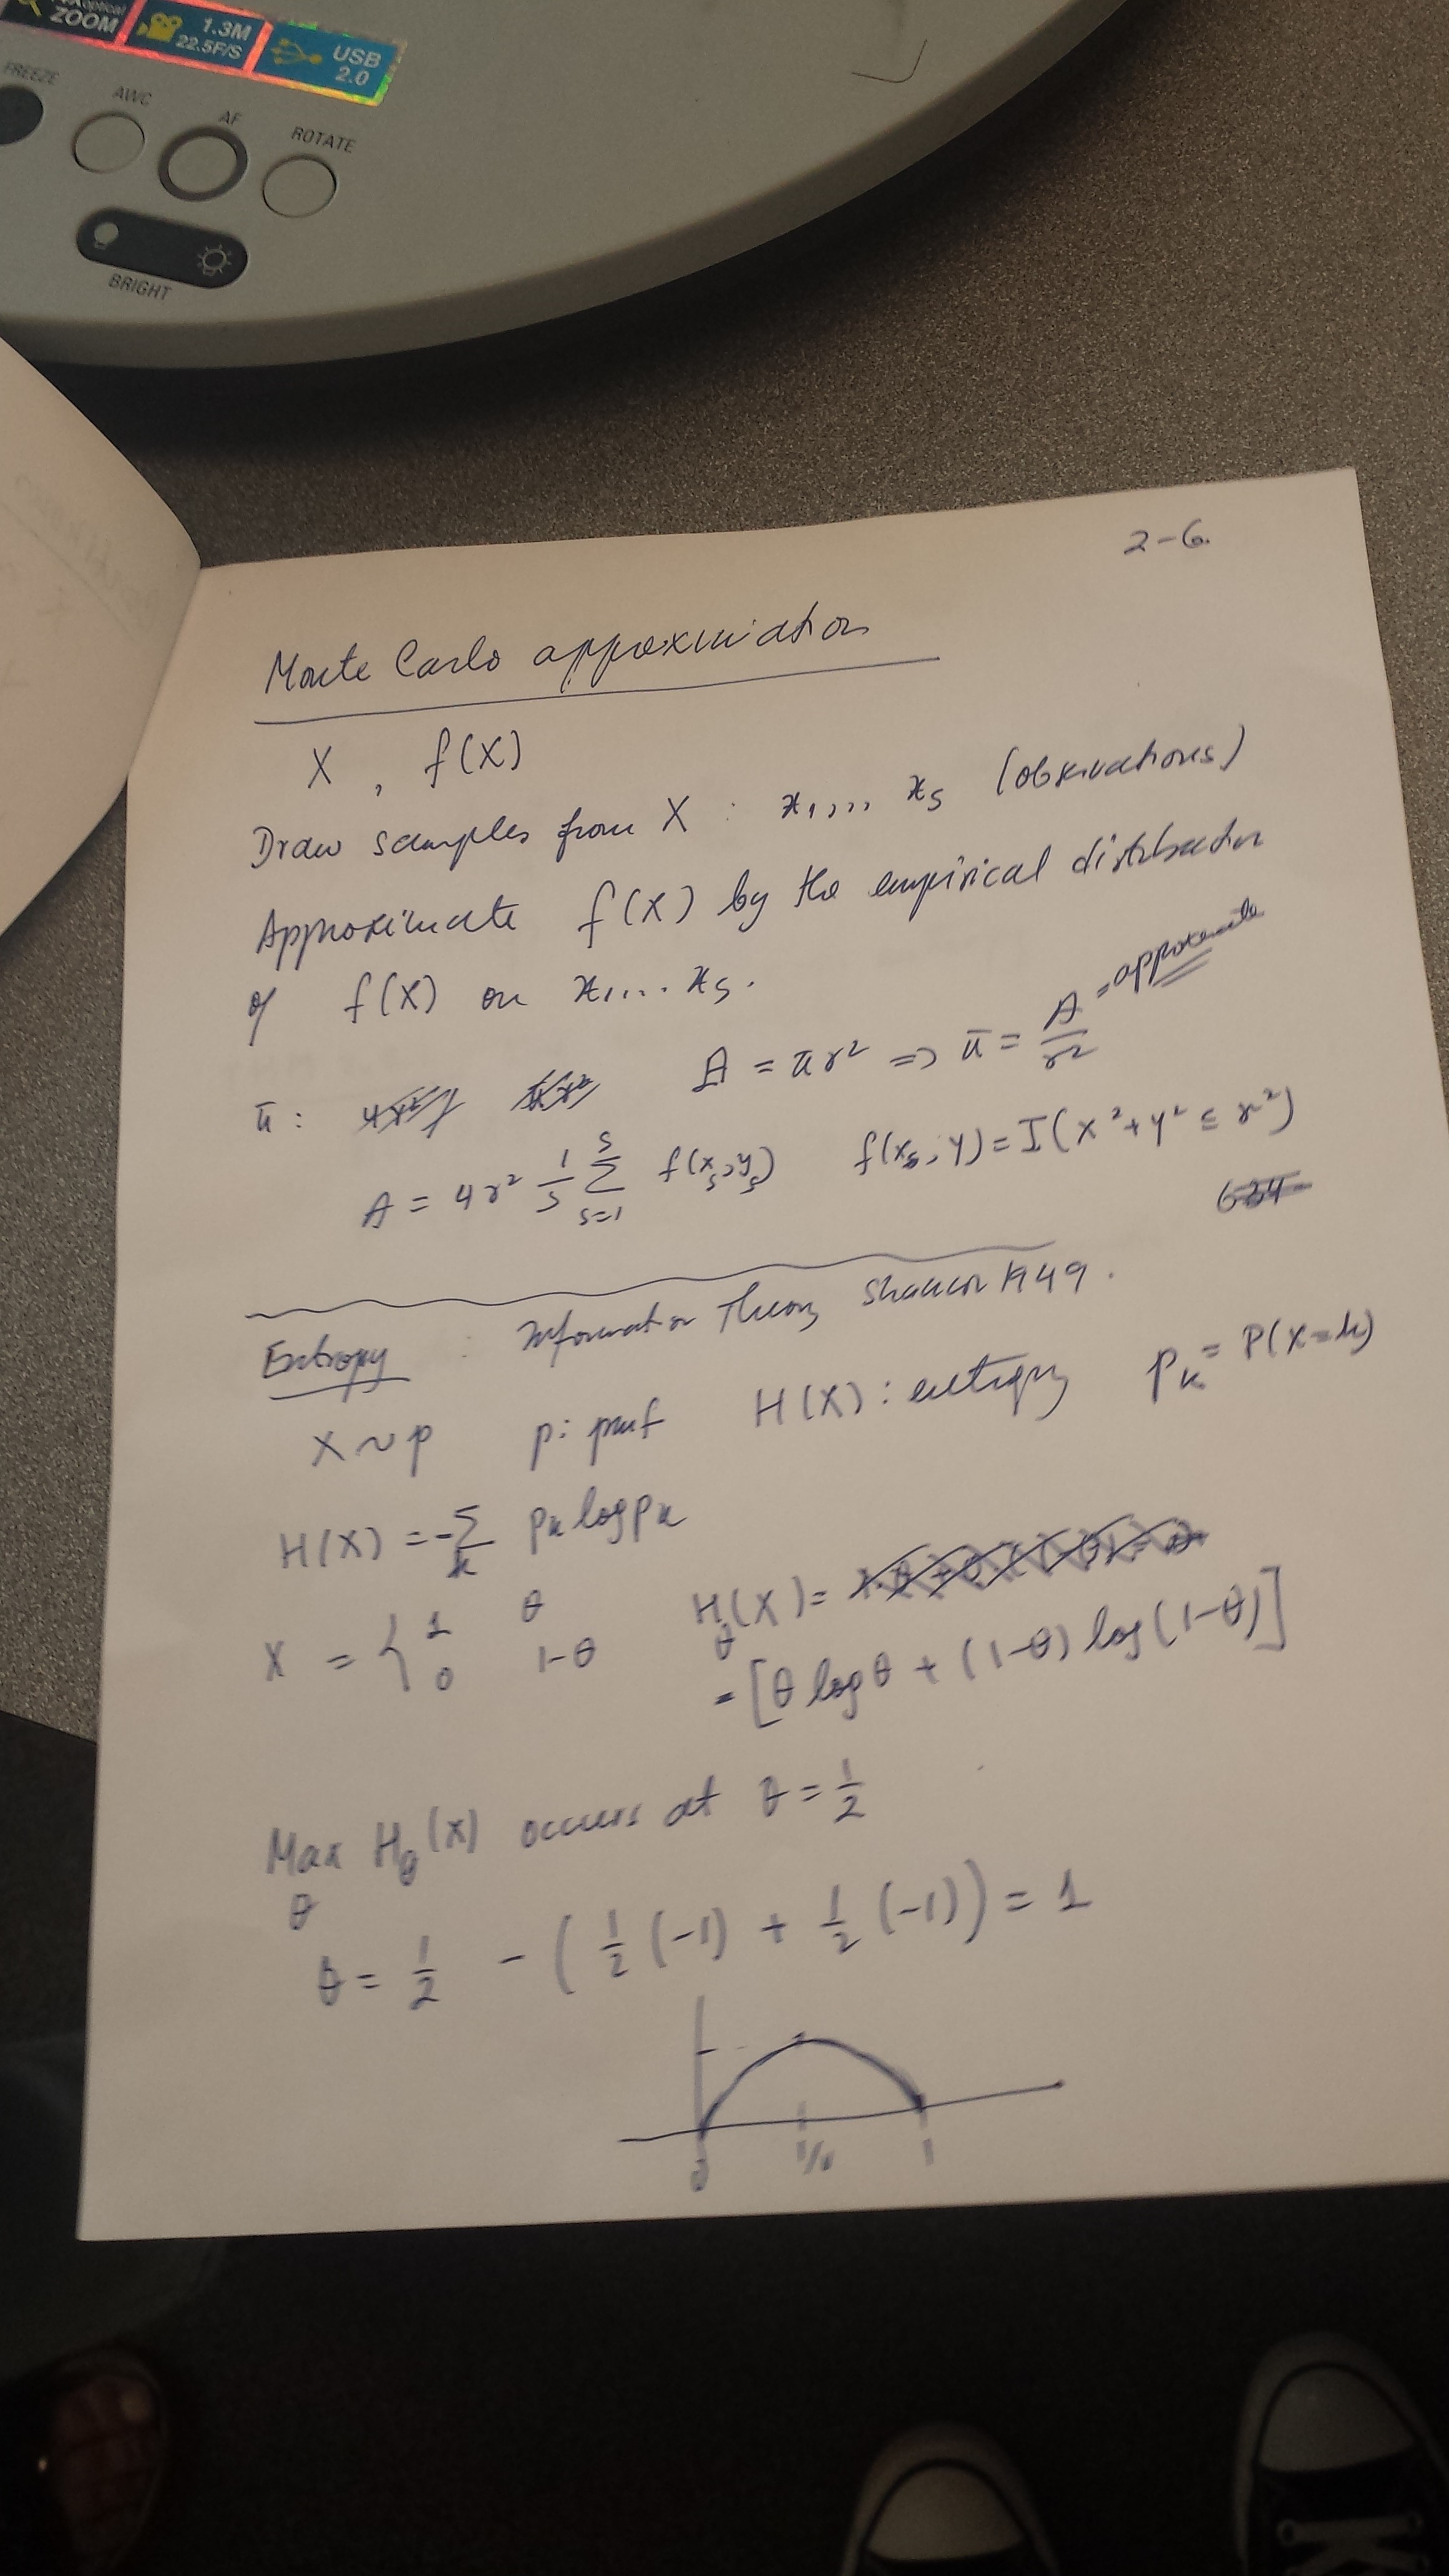 ZOOM
1.3M
22.5F/S
USB
2.0
FREEZE
AWC
AF
ROTATE
BRIGHT
2-6
Monte Carlo approximation
X , f(X)
Draw samples from X : x₁,,, x_S (observations)
Approximate f(X) by the empirical distribution
of f(X) on x₁,... x_S.
π : A = πr² => π = A/r² = approximate
A = 4r² 1/S Σ_{s=1}^{S} f(x_s, y_s) f(x_s, y) = I(x² + y² ≤ r²)
Entropy : Information Theory Shannon 1949.
X ~ p p: pmf H(X): entropy p_k = P(X=k)
H(X) = -Σ_k p_k log p_k
X = { 1 θ H_θ(X) =
0 1-θ -[θ log θ + (1-θ) log(1-θ)]
Max_θ H_θ(X) occurs at θ = 1/2
θ = 1/2 -(1/2 (-1) + 1/2 (-1)) = 1
0 1